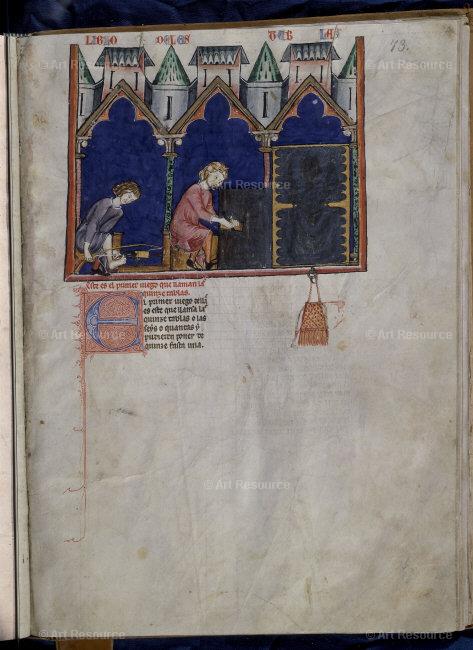 © Art Resource © Art Resource
LIBRO DELAS TAB LAS
73.
© Art Resource
Este es el primer iuego que llaman la
quinze tablas.
primer iuego
es este que llaman la
quinze tablas o las
seys o quantas
pudieren poner de
quinze fasta una.
© Art Resource
© Art Resource
© Art Resource © Art Resource